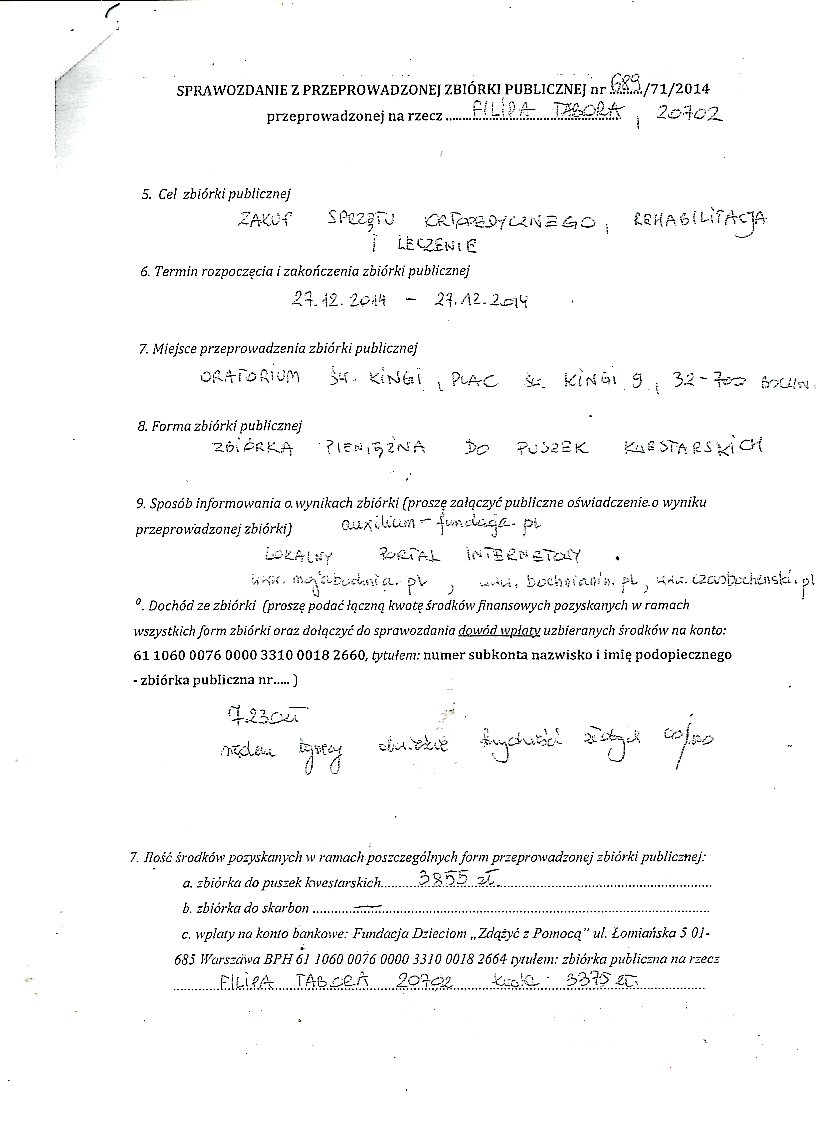 SPRAWOZDANIE Z PRZEPROWADZONEJ ZBIÓRKI PUBLICZNEJ nr 689/71/2014
przeprowadzonej na rzecz FILIPA TABORA, 20702
5. Cel zbiórki publicznej
ZAKUP SPRZĘTU ORTOPEDYCZNEGO, REHABILITACJA
I LECZENIE
6. Termin rozpoczęcia i zakończenia zbiórki publicznej
27.12.2014 – 27.12.2014
7. Miejsce przeprowadzenia zbiórki publicznej
ORATORIUM ŚW. KINGI, PLAC ŚW. KINGI 9, 32-700 BOCHN.
8. Forma zbiórki publicznej
ZBIÓRKA PIENIĘŻNA DO PUSZEK KWESTARSKICH
9. Sposób informowania o wynikach zbiórki (proszę załączyć publiczne oświadczenie o wyniku
przeprowadzonej zbiórki) auxilium-fundacja.pl
LOKALNY PORTAL INTERNETOWY
www.mojabochnia.pl, www.bochnianin.pl, www.czasbochenski.pl
0. Dochód ze zbiórki (proszę podać łączną kwotę środków finansowych pozyskanych w ramach
wszystkich form zbiórki oraz dołączyć do sprawozdania dowód wpłaty uzbieranych środków na konto:
61 1060 0076 0000 3310 0018 2660, tytułem: numer subkonta nazwisko i imię podopiecznego
- zbiórka publiczna nr..... )
7230zł
siedem tysięcy dwieście trzydzieści złotych 00/100
7. Ilość środków pozyskanych w ramach poszczególnych form przeprowadzonej zbiórki publicznej:
a. zbiórka do puszek kwestarskich 3855 zł
b. zbiórka do skarbon —
c. wpłaty na konto bankowe: Fundacja Dzieciom „Zdążyć z Pomocą" ul. Łomiańska 5 01-
685 Warszawa BPH 61 1060 0076 0000 3310 0018 2664 tytułem: zbiórka publiczna na rzecz
FILIPA TABORA 20702 3375 zł